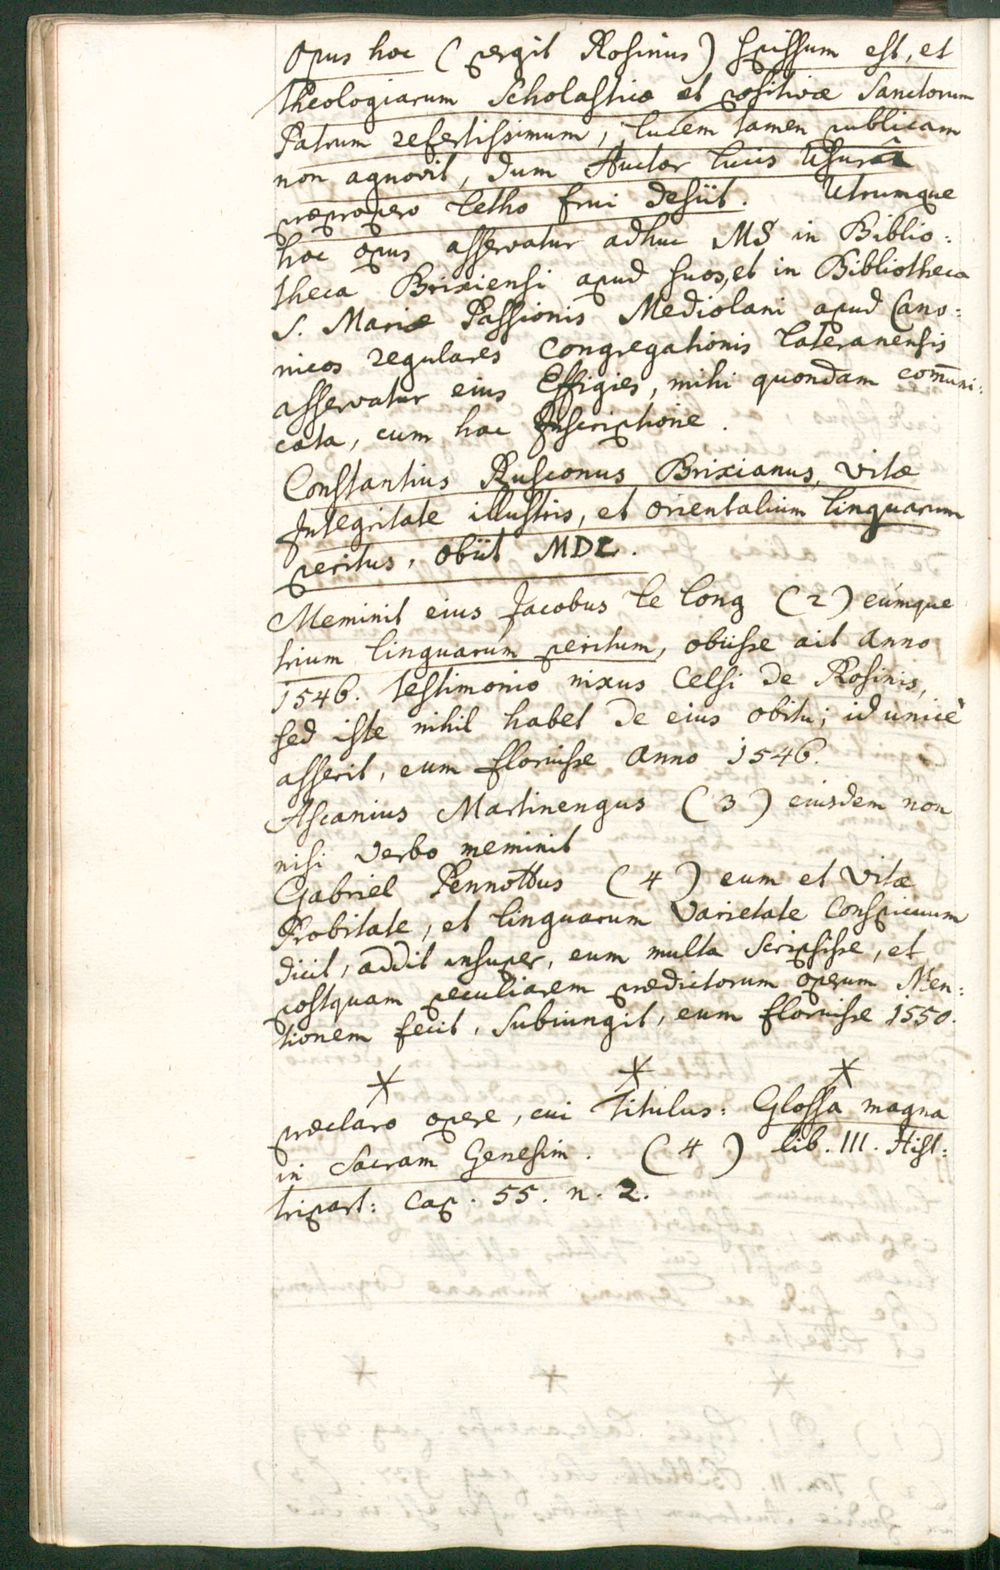 Opus hoc (pergit Rosinus) spissum est, et
Theologiarum Scholasticæ et positivæ Sanctorum
Patrum refertissimum, lucem tamen publicam
non agnovit, dum Auctor lucis Usurâ
præpropero Letho frui desiit. Utrumque
hoc opus asservatur adhuc MS in Biblio:
theca Brixiensi apud suos, et in Bibliotheca
S. Mariæ Passionis Mediolani apud Cano:
nicos regulares Congregationis Lateranensis
asservatur eius Effigies, mihi quondam com̄uni:
cata, cum hac Inscriptione.
Constantius Rusconus Brixianus, vitæ
Integritate illustris, et orientalium linguarum
peritus, obiit MDL.
Meminit eius Jacobus Le Long (2) eumque
trium linguarum peritum, obiisse ait Anno
1546. testimonio nixus Celsi de Rosinis,
sed iste nihil habet de eius obitu; id unicè
asserit, eum floruisse Anno 1546.
Ascanius Martinengus (3) eiusdem non
nisi verbo meminit
Gabriel Pennottus (4) eum et Vitæ
Probitate, et linguarum Varietate Conspicuum
dicit, addit insuper, eum multa scripsisse, et
postquam peculiarem prædictorum operum Men:
tionem fecit, Subiungit, eum floruisse 1550.
* * *
præclaro opere, cui Titulus: Glossa magna
in Sacram Genesim. (4) lib. III. Hist:
tripart: Cap. 55. n. 2.